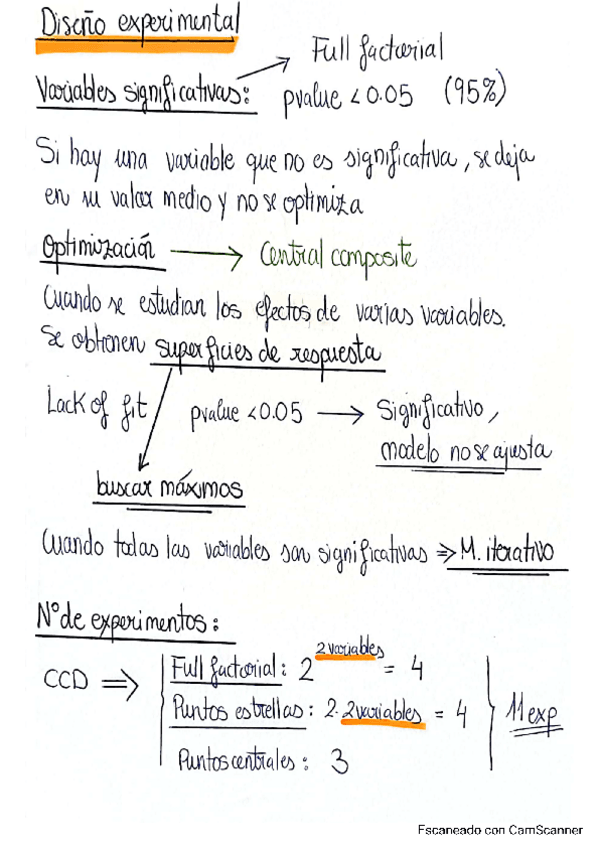 Diseño experimental
Full factorial
Variables significativas:
pvalue < 0.05 (95%)
Si hay una variable que no es significativa, se deja
en su valor medio y no se optimiza
Optimización → Central composite
Cuando se estudian los efectos de varias variables.
Se obtienen superficies de respuesta
Lack of fit pvalue < 0.05 → Significativo,
modelo no se ajusta
buscar máximos
Cuando todas las variables son significativas => M. iterativo
Nº de experimentos:
CCD => Full factorial: 2^2variables = 4
Puntos estrellas: 2·2variables = 4
Puntos centrales: 3
11 exp
Escaneado con CamScanner